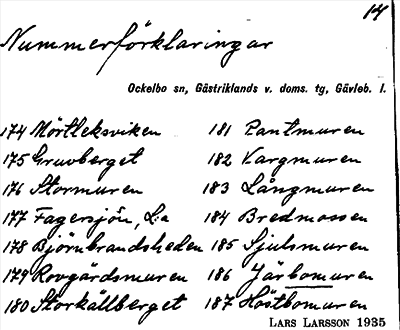 14
Nummerförklaringar
Ockelbo sn, Gästriklands v. doms. tg, Gävleb. l.
174 Mörtleksviken
175 Gruvberget
176 Stormuren
177 Fagersjön, L:a
178 Björnbrandsheden
179 Rovgårdsmuren
180 Storkällberget
181 Pantmuren
182 Vargmuren
183 Långmuren
184 Bredmossen
185 Sjulsmuren
186 Järbomuren
187 Höstbomuren
LARS LARSSON 1935